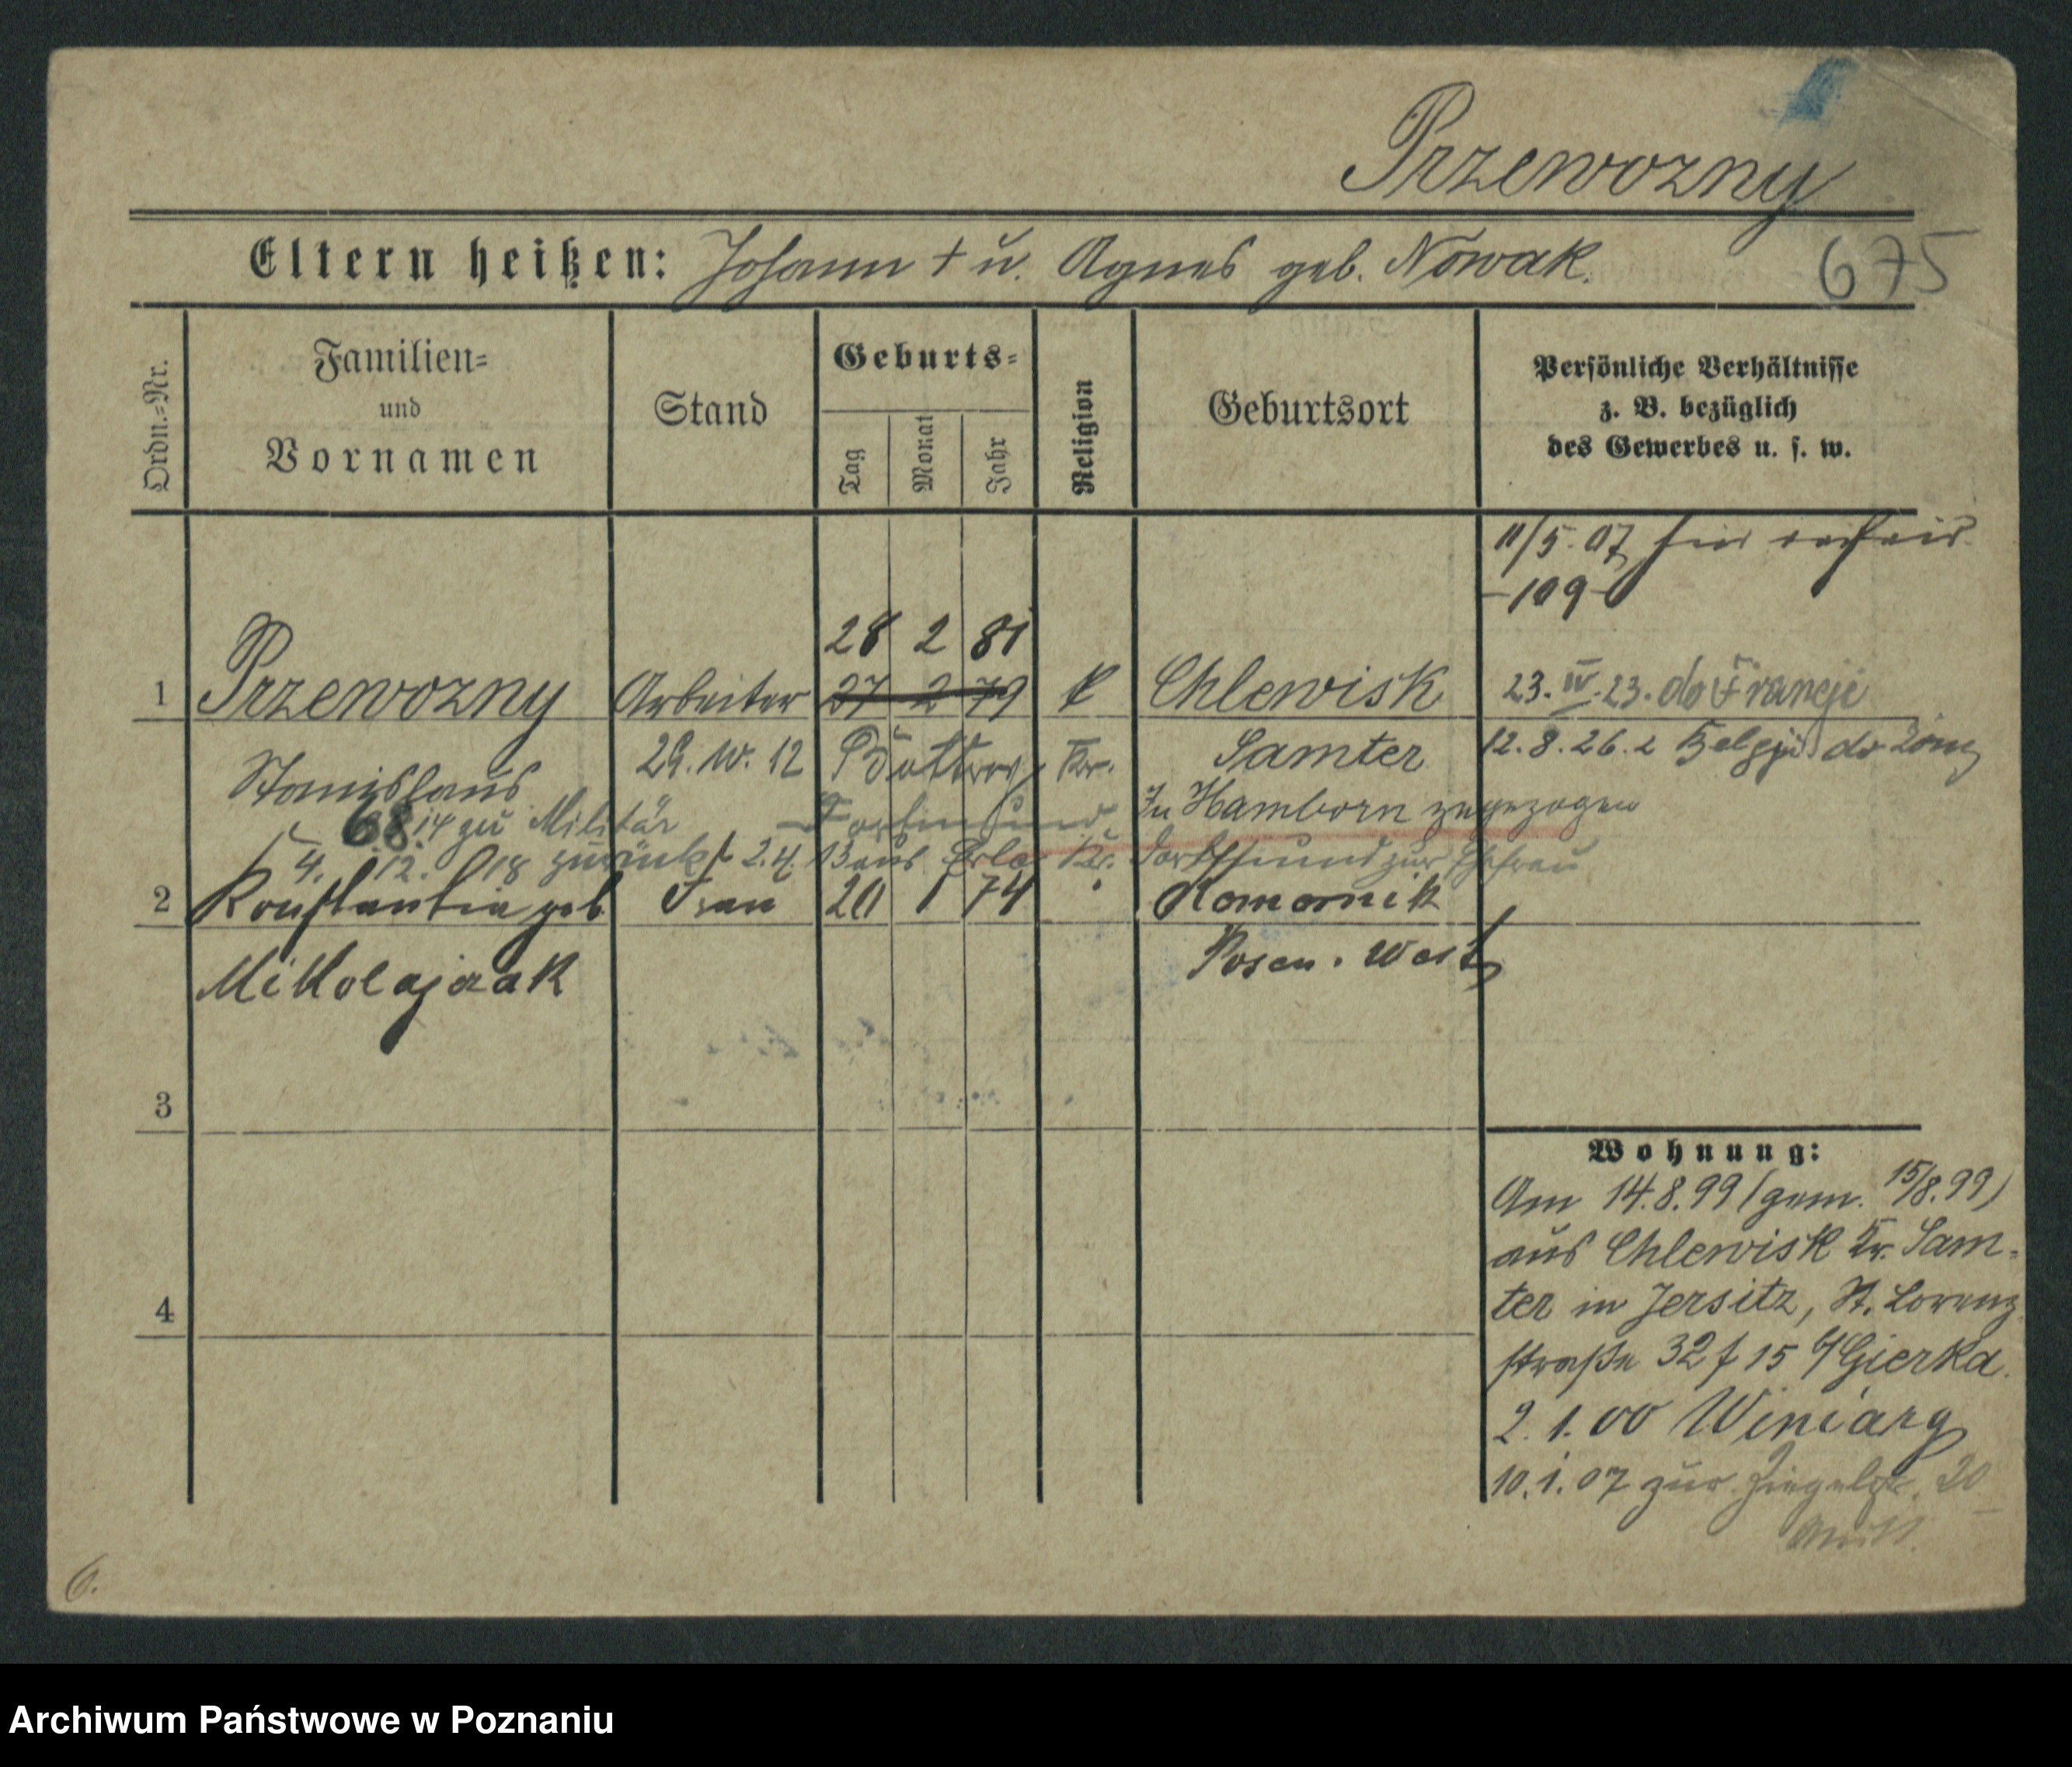 Przewozny
Eltern heißen: Johann † u. Agnes geb. Nowak.
675
Ordn.=Nr.
Familien=
und
Vornamen
Stand
Geburts=
Tag
Monat
Jahr
Religion
Geburtsort
Persönliche Verhältnisse
z. B. bezüglich
des Gewerbes u. s. w.
11/5. 07 hier
-109-
28 2 81
1 Przewozny Arbeiter 27 2 79 k Chlewisk 23. IV. 23. do Francji
Stanislaus 29. 10. 12 Kr. Samter 12. 8. 26. z Belgji do żony
6.8.14 zu Militär Dortmund In Hamborn zugezogen
4. 12. 18 zurück 2. 4. 13 aus Kr. Dortmund zur Ehefrau
2 Konstantia geb. Frau 20 1 74 Komornik
Mikolajczak Posen. West
3
4
Wohnung:
Am 14.8.99 (gem. 15/8.99)
aus Chlewisk Kr. Sam-
ter in Jersitz, St. Lorenz
straße 32 f 15 b/Gierka.
2. 1. 00 Winiary
10. 1. 07 zur Ziegelstr. 20
6.
Archiwum Państwowe w Poznaniu